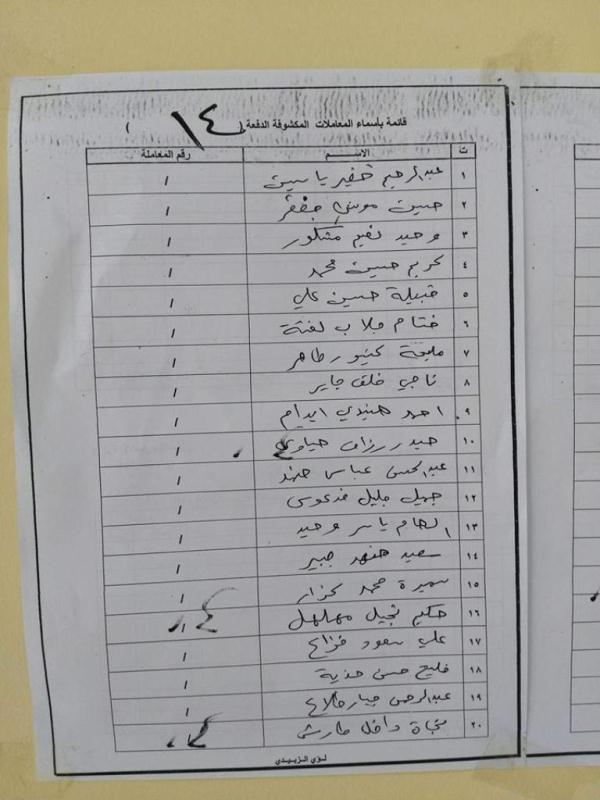 قائمة بأسماء المعاملات المكشوفة الدفعة ( ١٤ )
ت الاسم رقم المعاملة
١ عبدالرحيم خضير ياسين ١
٢ حسين موسى جعفر ١
٣ وحيد نعيم مشكور ١
٤ كريم حسين محمد ١
٥ قبيلة حسين علي ١
٦ ختام جلاب لفتة ١
٧ طاهر ١
٨ ناجي خلف جابر ١
٩ احمد هنيدي ١
١٠ حيدر رزاق حياوي
١١ عبدالحسن عباس ١
١٢ جميل جليل ١
١٣ الهام ياسر وحيد ١
١٤ سعيد جبير ١
١٥ سميرة محمد ١
١٦ حكيم مهلهل
١٧ علي سعود فزاع ١
١٨ فليح حسن ١
١٩ عبدالرحمن جبار ١
٢٠ نجاة داخل
لؤي الزبيدي